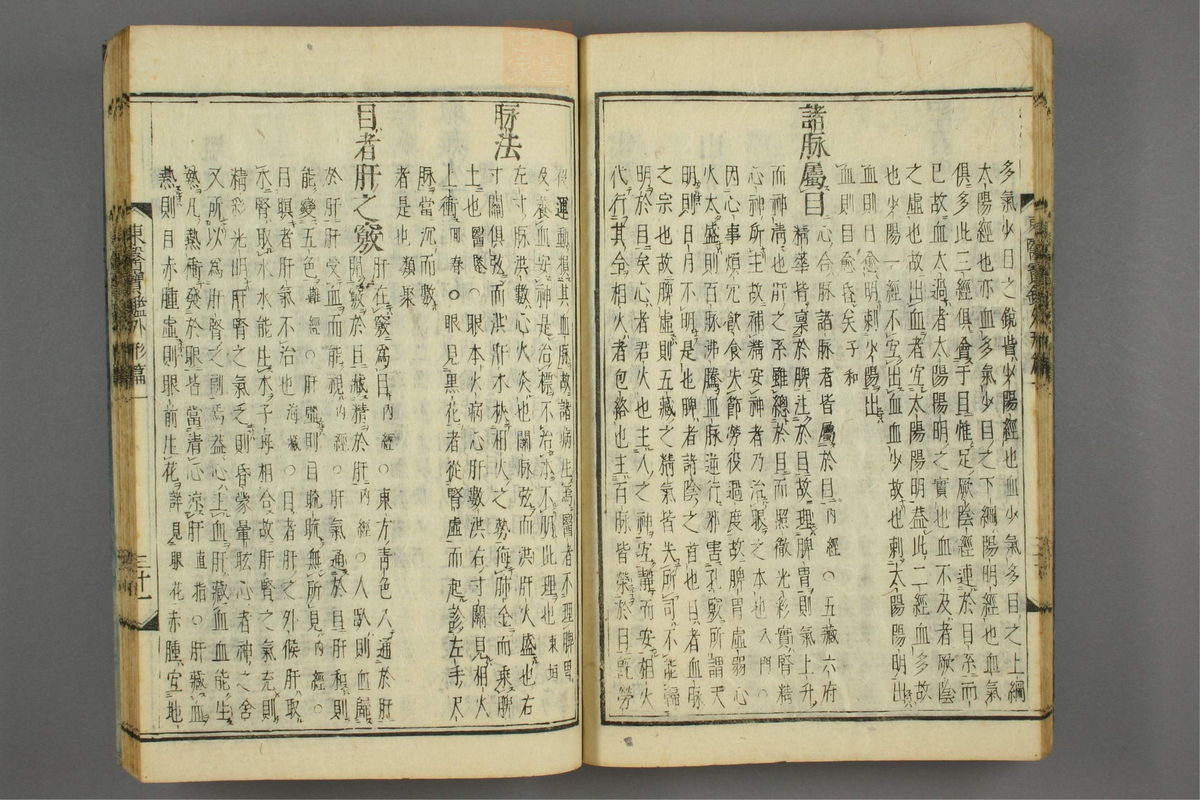 多氣少目之銳眥少陽經也血少氣多目之上綱
太陽經也亦血多氣少目之下綱陽明經也血氣
俱多此三經俱會于目惟足厥陰經連於目系而
已故血太過者太陽陽明之實也血不及者厥陰
之虛也故出血者宜太陽陽明盖此二經血多故
也少陽一經不宜出血血少故也刺太陽陽明出
血則目愈明刺少陽出
血則目愈昏矣子和
諸脉屬目
心合脉諸脉者皆屬於目內經○五藏六府
精華皆稟於脾注於目故理脾胃則氣上升
而神淸也肝之系雖總於目而照徹光彩實腎精
心神所主故補精安神者乃治眼之本也入門○
因心事煩冗飮食失節勞役過度故脾胃虛弱心
火太盛則百脉沸騰血脉逆行邪害孔竅所謂天
明則日月不明是也脾者諸陰之首也目者血脉
之宗也故脾虛則五藏之精氣皆失所司不能歸
明於目矣心者君火也主人之神宜靜而安相火
代行其令相火者包絡也主百脉皆榮於目旣勞
役運動損其血脉故諸病生焉醫者不理脾胃
及養血安神是治標不治本不明此理也東垣
脉法
左寸脉洪數心火炎也關脉弦而洪肝火盛也右
寸關俱弦而洪肝木挾相火之勢侮肺金而乘脾
土也醫鑑○眼本火病心肝數洪右寸關見相火
上衝回春○眼見黑花者從腎虛而起診左手尺
脉當沉而數
者是也類聚
目者肝之竅
肝在竅爲目內經○東方靑色入通於肝
開竅於目藏精於肝內經○人臥則血歸
於肝肝受血而能視內經○肝氣通於目肝和則
能變五色難經○肝虛則目䀮䀮無所見內經○
目瞑者肝氣不治也海藏○目者肝之外候肝取
木腎取水水能生木子母相合故肝腎之氣充則
精彩光明肝腎之氣乏則昏蒙暈眩心者神之舍
又所以爲肝腎之副焉盖心主血肝藏血血能生
熱凡熱衝發於眼皆當淸心凉肝直指○肝藏血
熱則目赤腫虛則眼前生花詳見眼花赤腫宜地
東醫寶鑑外形篇一
三十一